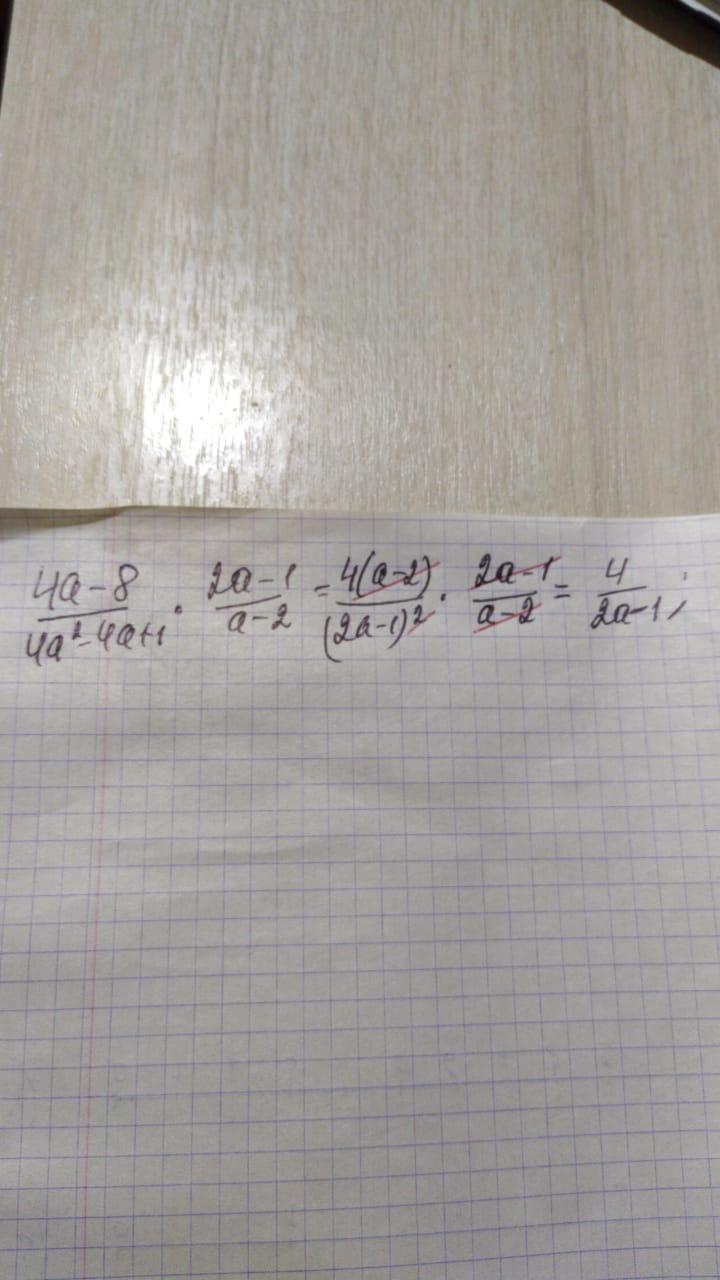 (4a-8)/(4a²-4a+1) · (2a-1)/(a-2) = 4(a-2)/(2a-1)² · (2a-1)/(a-2) = 4/(2a-1);